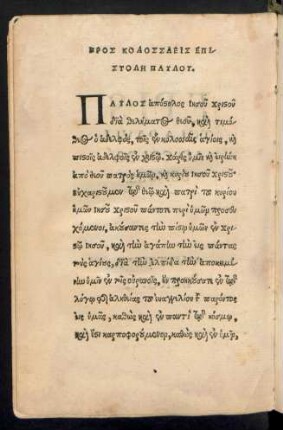 ΠΡΟΣ ΚΟΛΟΣΣΑΕΙΣ ΕΠΙ
ΣΤΟΛΗ ΠΑΥΛΟΥ.
ΠΑΥΛΟΣ ἀπόστολος ἰησοῦ χριστοῦ
διὰ θελήματος θεοῦ, καὶ τιμό
θεος ὁ ἀδελφὸς, τοῖς ἐν κολοσσαῖς ἁγίοις, καὶ
πιστοῖς ἀδελφοῖς ἐν χριστῷ. χάρις ὑμῖν καὶ εἰρήνη
ἀπὸ θεοῦ πατρὸς ἡμῶν, καὶ κυρίου ἰησοῦ χριστοῦ
εὐχαριστοῦμεν τῷ θεῷ καὶ πατρὶ τοῦ κυρίου
ἡμῶν ἰησοῦ χριστοῦ πάντοτε περὶ ὑμῶν προσευ
χόμενοι, ἀκούσαντες τὴν πίστιν ὑμῶν ἐν χρι
στῷ ἰησοῦ, καὶ τὴν ἀγάπην τὴν εἰς πάντας
τοὺς ἁγίους, διὰ τὴν ἐλπίδα τὴν ἀποκειμέ
νην ὑμῖν ἐν τοῖς οὐρανοῖς, ἣν προηκούσατε ἐν τῷ
λόγῳ τῆς ἀληθείας τοῦ εὐαγγελίου τοῦ παρόντος
εἰς ὑμᾶς, καθὼς καὶ ἐν παντὶ τῷ κόσμῳ,
καὶ ἔστι καρποφορούμενον, καθὼς καὶ ἐν ὑμῖν,